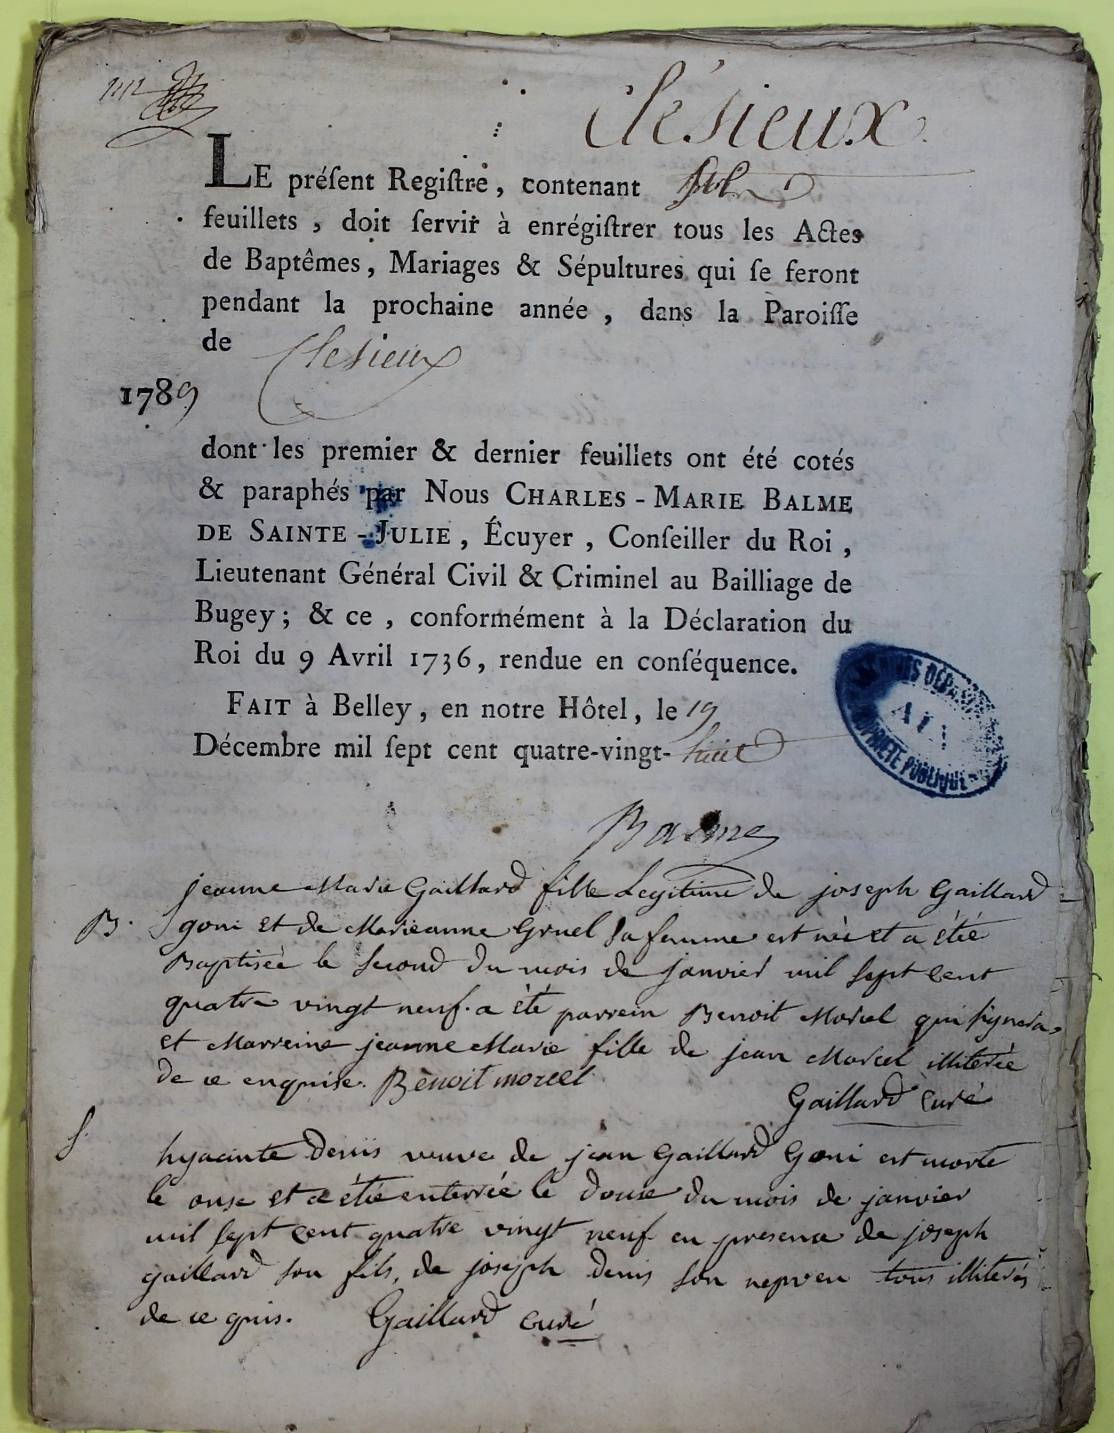 Clésieux
LE préſent Regiſtre, contenant
feuillets, doit ſervir à enrégiſtrer tous les Actes
de Baptêmes, Mariages & Sépultures qui ſe feront
pendant la prochaine année, dans la Paroiſſe
de Clesieux
1789
dont les premier & dernier feuillets ont été cotés
& paraphés par Nous CHARLES-MARIE BALME
DE SAINTE-JULIE, Écuyer, Conſeiller du Roi,
Lieutenant Général Civil & Criminel au Bailliage de
Bugey; & ce, conformément à la Déclaration du
Roi du 9 Avril 1736, rendue en conſéquence.
FAIT à Belley, en notre Hôtel, le 19
Décembre mil ſept cent quatre-vingt-huit
ARCHIVES DÉPART
AIN
PROPRIÉTÉ PUBLIQUE
Balme
jeanne Marie Gaillard fille Legitime de joseph Gaillard
B. goni et de Marieanne Gruel sa femme est née et a étée
Baptisée le second du mois de janvier mil sept cent
quatre vingt neuf. a été parrein Benoit Morcel qui signera,
et Marreine jeanne Marie fille de jean Morcel illiterée
de ce enquise. Benoit morcel
Gaillard curé
S. hyacinte Denis veuve de jean Gaillard Goni est morte
le onse et a étée enterrée le douse du mois de janvier
mil sept cent quatre vingt neuf en presence de joseph
gaillard son fils, de joseph Denis son nepveu tous illiterés
de ce quis. Gaillard curé